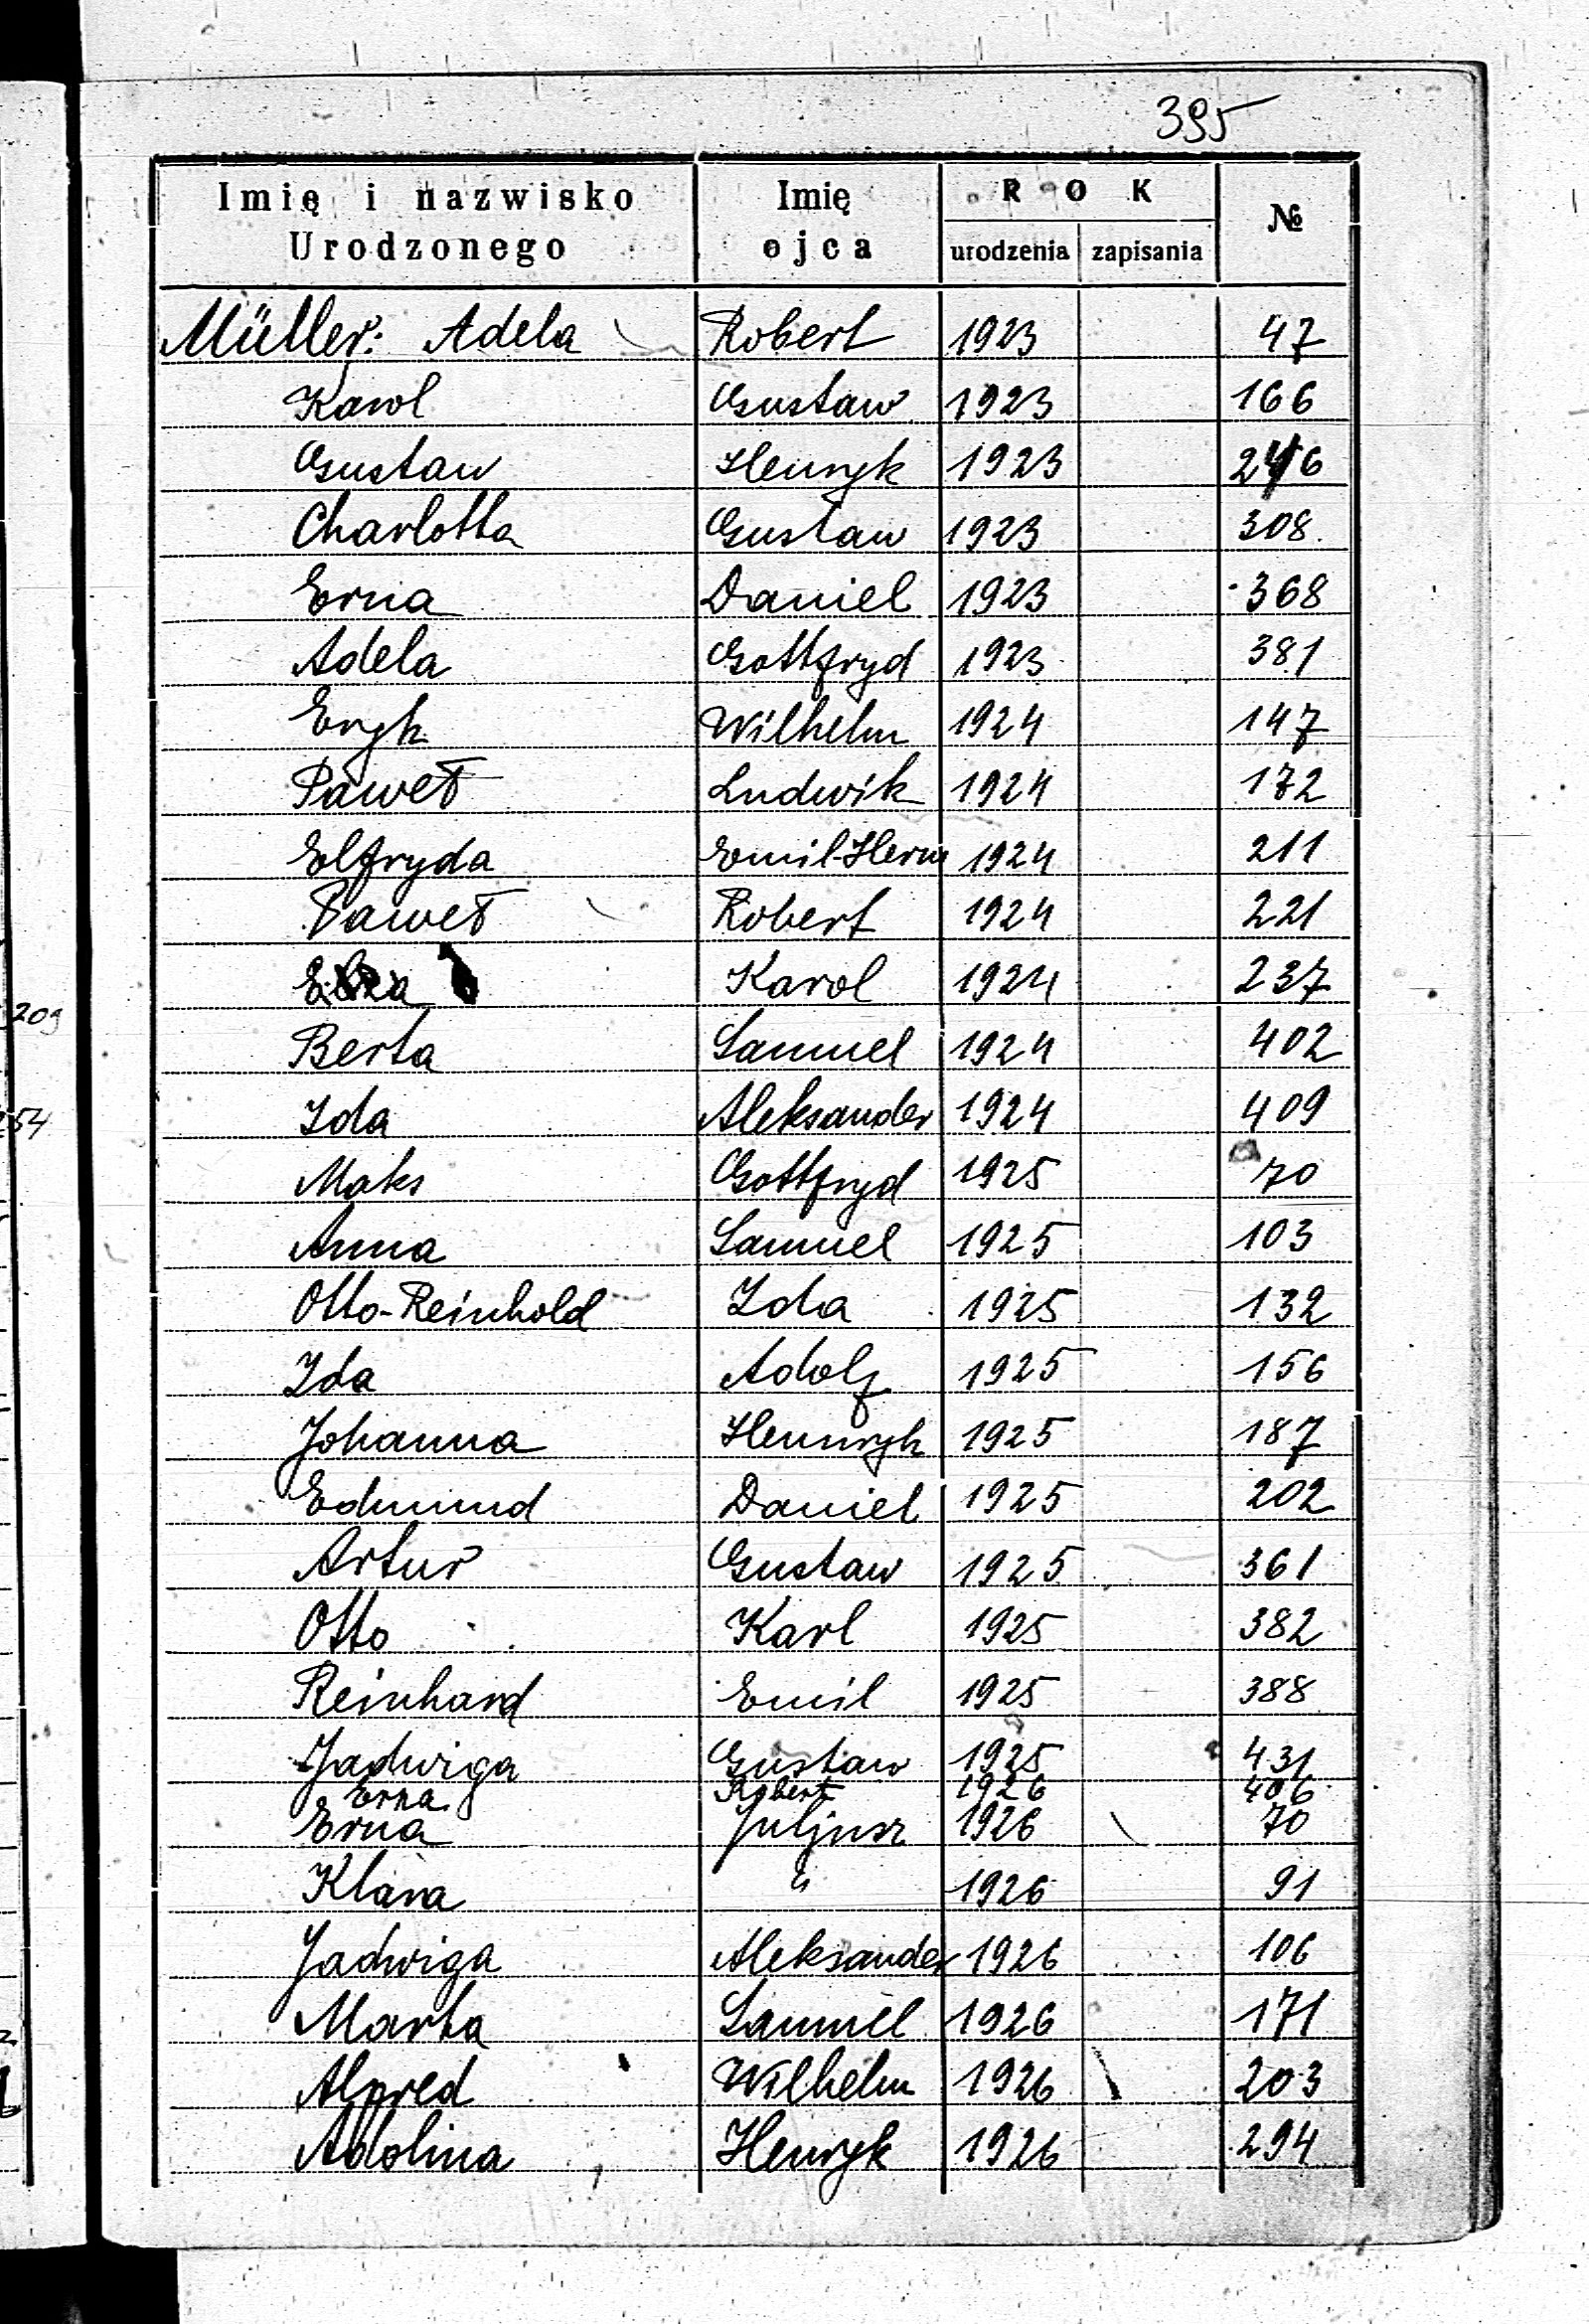 395
Imię i nazwisko Urodzonego Imię ojca ROK urodzenia zapisania №
Müller: Adela Robert 1923 47
Karol Gustaw 1923 166
Gustaw Henryk 1923 246
Charlotta Gustaw 1923 308
Erna Daniel 1923 368
Adela Gottfryd 1923 381
Eryk Wilhelm 1924 147
Paweł Ludwik 1924 172
Elfryda Emil-Herm 1924 211
Paweł Robert 1924 221
Karol 1924 237
Berta Samuel 1924 402
Ida Aleksander 1924 409
Maks Gottfryd 1925 70
Anna Samuel 1925 103
Otto-Reinhold Ida 1925 132
Ida Adolf 1925 156
Johanna Henryk 1925 187
Edmund Daniel 1925 202
Artur Gustaw 1925 361
Otto Karl 1925 382
Reinhard Emil 1925 388
Jadwiga Gustaw 1925 431
Erna Robert 1926 406
Erna Juljusz 1926 70
Klara " 1926 91
Jadwiga Aleksander 1926 106
Marta Samuel 1926 171
Alfred Wilhelm 1926 203
Adolina Henryk 1926 294
209
54